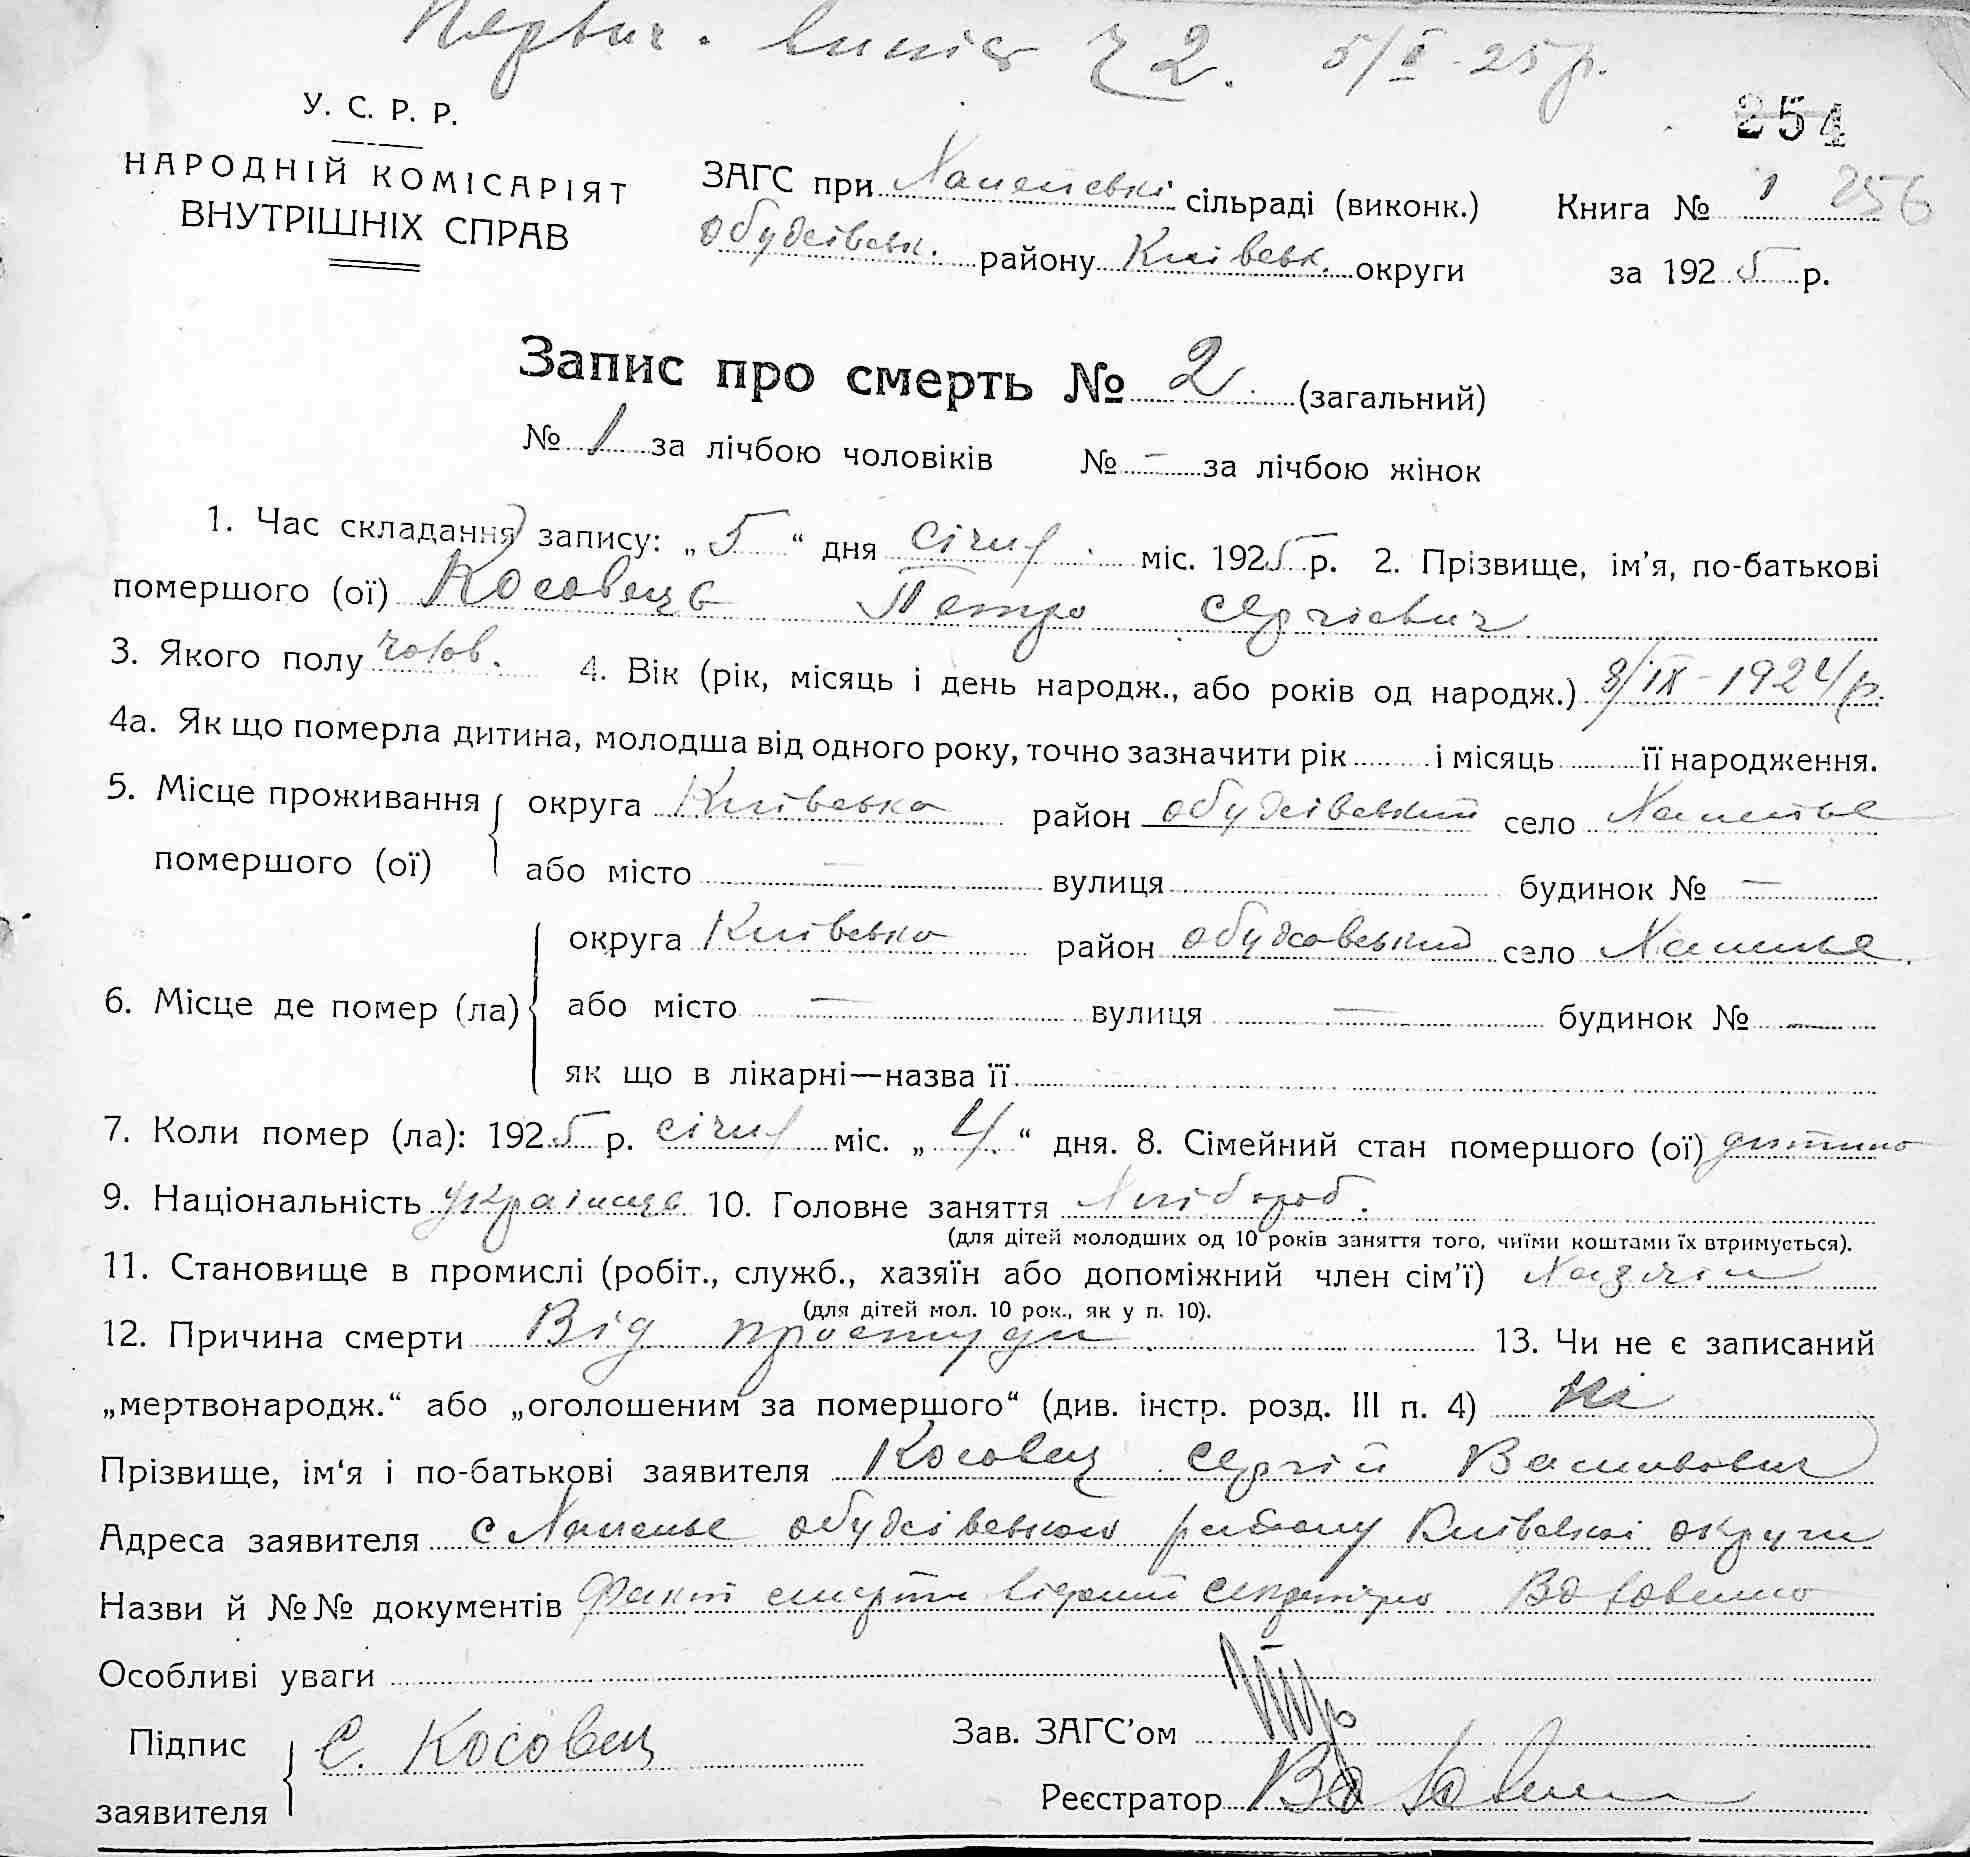 Первич. випис Ч 2. 5/I-25 р.
У. С. Р. Р.
254
НАРОДНІЙ КОМІСАРІЯТ
ВНУТРІШНІХ СПРАВ
ЗАГС при сільраді (виконк.) Книга № 1 256
обухівськ. району Київськ. округи за 1925 р.
Запис про смерть № 2. (загальний)
№ 1 за лічбою чоловіків № – за лічбою жінок
1. Час складання запису: „5“ дня січня міс. 1925 р. 2. Прізвище, ім’я, по-батькові
помершого (ої) Косовець Петро Сергієвич
3. Якого полу чолов. 4. Вік (рік, місяць і день народж., або років од народж.) 8/IX-1924 р.
4а. Як що померла дитина, молодша від одного року, точно зазначити рік і місяць її народження.
5. Місце проживання помершого (ої) округа Київська район обухівський село Халепье
або місто – вулиця будинок № –
6. Місце де помер (ла) округа Київська район обуховський село Халепье
або місто – вулиця – будинок № –
як що в лікарні—назва її
7. Коли помер (ла): 1925 р. січня міс. „4“ дня. 8. Сімейний стан помершого (ої) дитина
9. Національність українець 10. Головне заняття Хлібороб.
(для дітей молодших од 10 років заняття того, чиїми коштами їх втримується).
11. Становище в промислі (робіт., служб., хазяїн або допоміжний член сім’ї) Хазяїн
(для дітей мол. 10 рок., як у п. 10).
12. Причина смерти Від простуди 13. Чи не є записаний
„мертвонародж.“ або „оголошеним за помершого“ (див. інстр. розд. III п. 4) ні
Прізвище, ім‘я і по-батькові заявителя Косовец Сергій Васильович
Адреса заявителя с Халепье обухівського району Київської округи
Назви й №№ документів Факт смерти відомий секретарю
Особливі уваги
Підпис заявителя С. Косовец
Зав. ЗАГС’ом
Реєстратор